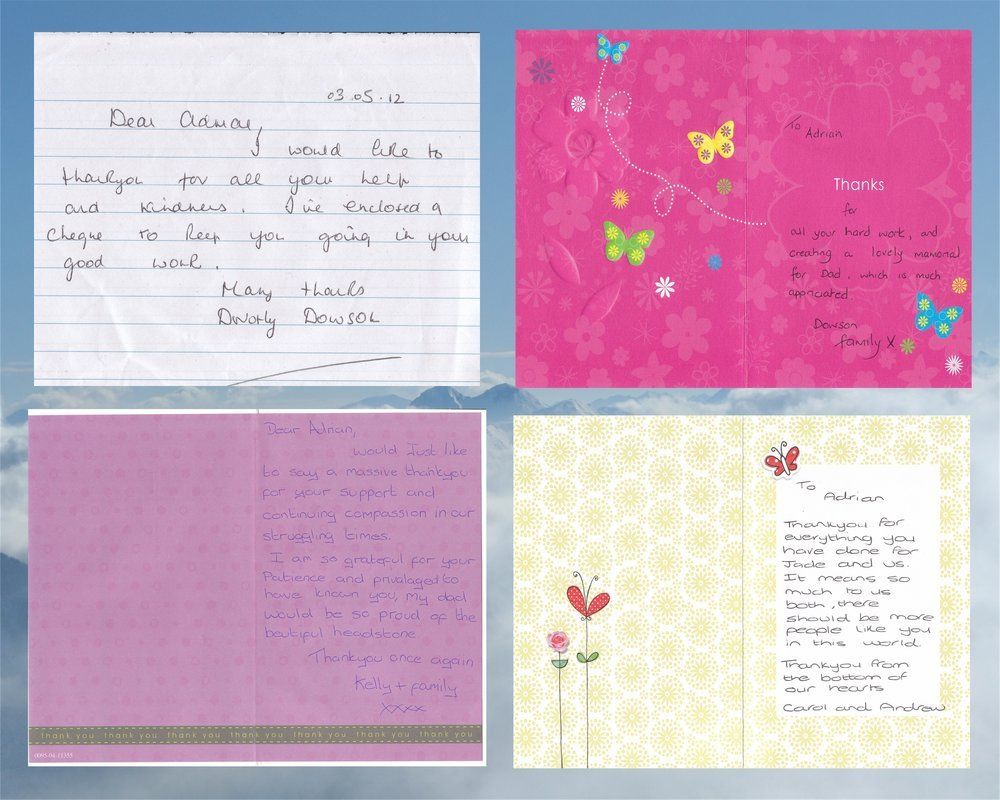 03.05.12
Dear Adrian,
I would like to
thankyou for all your help
and kindness. I've enclosed a
cheque to keep you going in your
good work.
Many thanks
Dowson
To Adrian
Thanks
for
all your hard work, and
creating a lovely mamorial
for Dad, which is much
appriciated.
Dowson
family X
Dear Adrian,
would Just like
to say a massive thankyou
for your support and
continuing compassion in our
struggling times.
I am so grateful for your
Patience and privalaged to
have known you, My dad
would be so proud of the
beutiful headstone
Thankyou once again
Kelly + family
xxxx
thank you thank you thank you thank you thank you thank you thank you thank you
0095-04-11355
To
Adrian
Thankyou for
everything you
have done for
Jade and us.
It means so
much to us
both, there
should be more
people like you
in this world.
Thankyou from
the bottom of
our hearts
Carol and Andrew